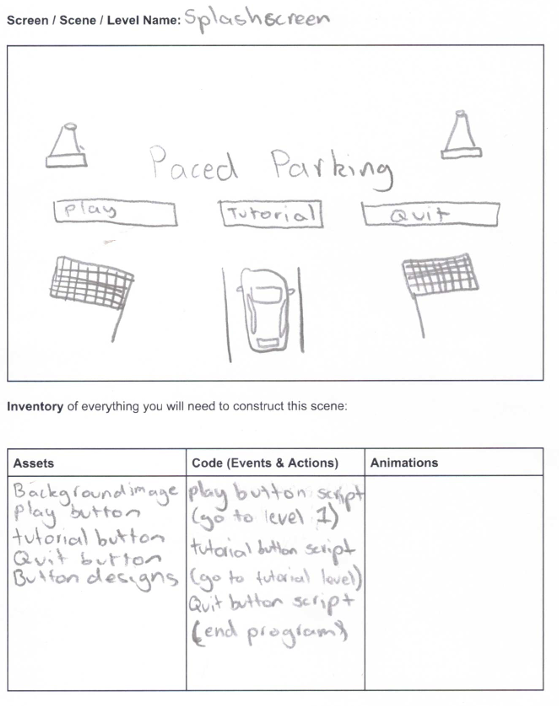 Screen / Scene / Level Name: Splashscreen
Paced Parking
Play
Tutorial
Quit
Inventory of everything you will need to construct this scene:
Assets
Code (Events & Actions)
Animations
Background image
Play button
tutorial button
Quit button
Button designs
play button script
(go to level 1)
tutorial button script
(go to tutorial level)
Quit button script
(end program)